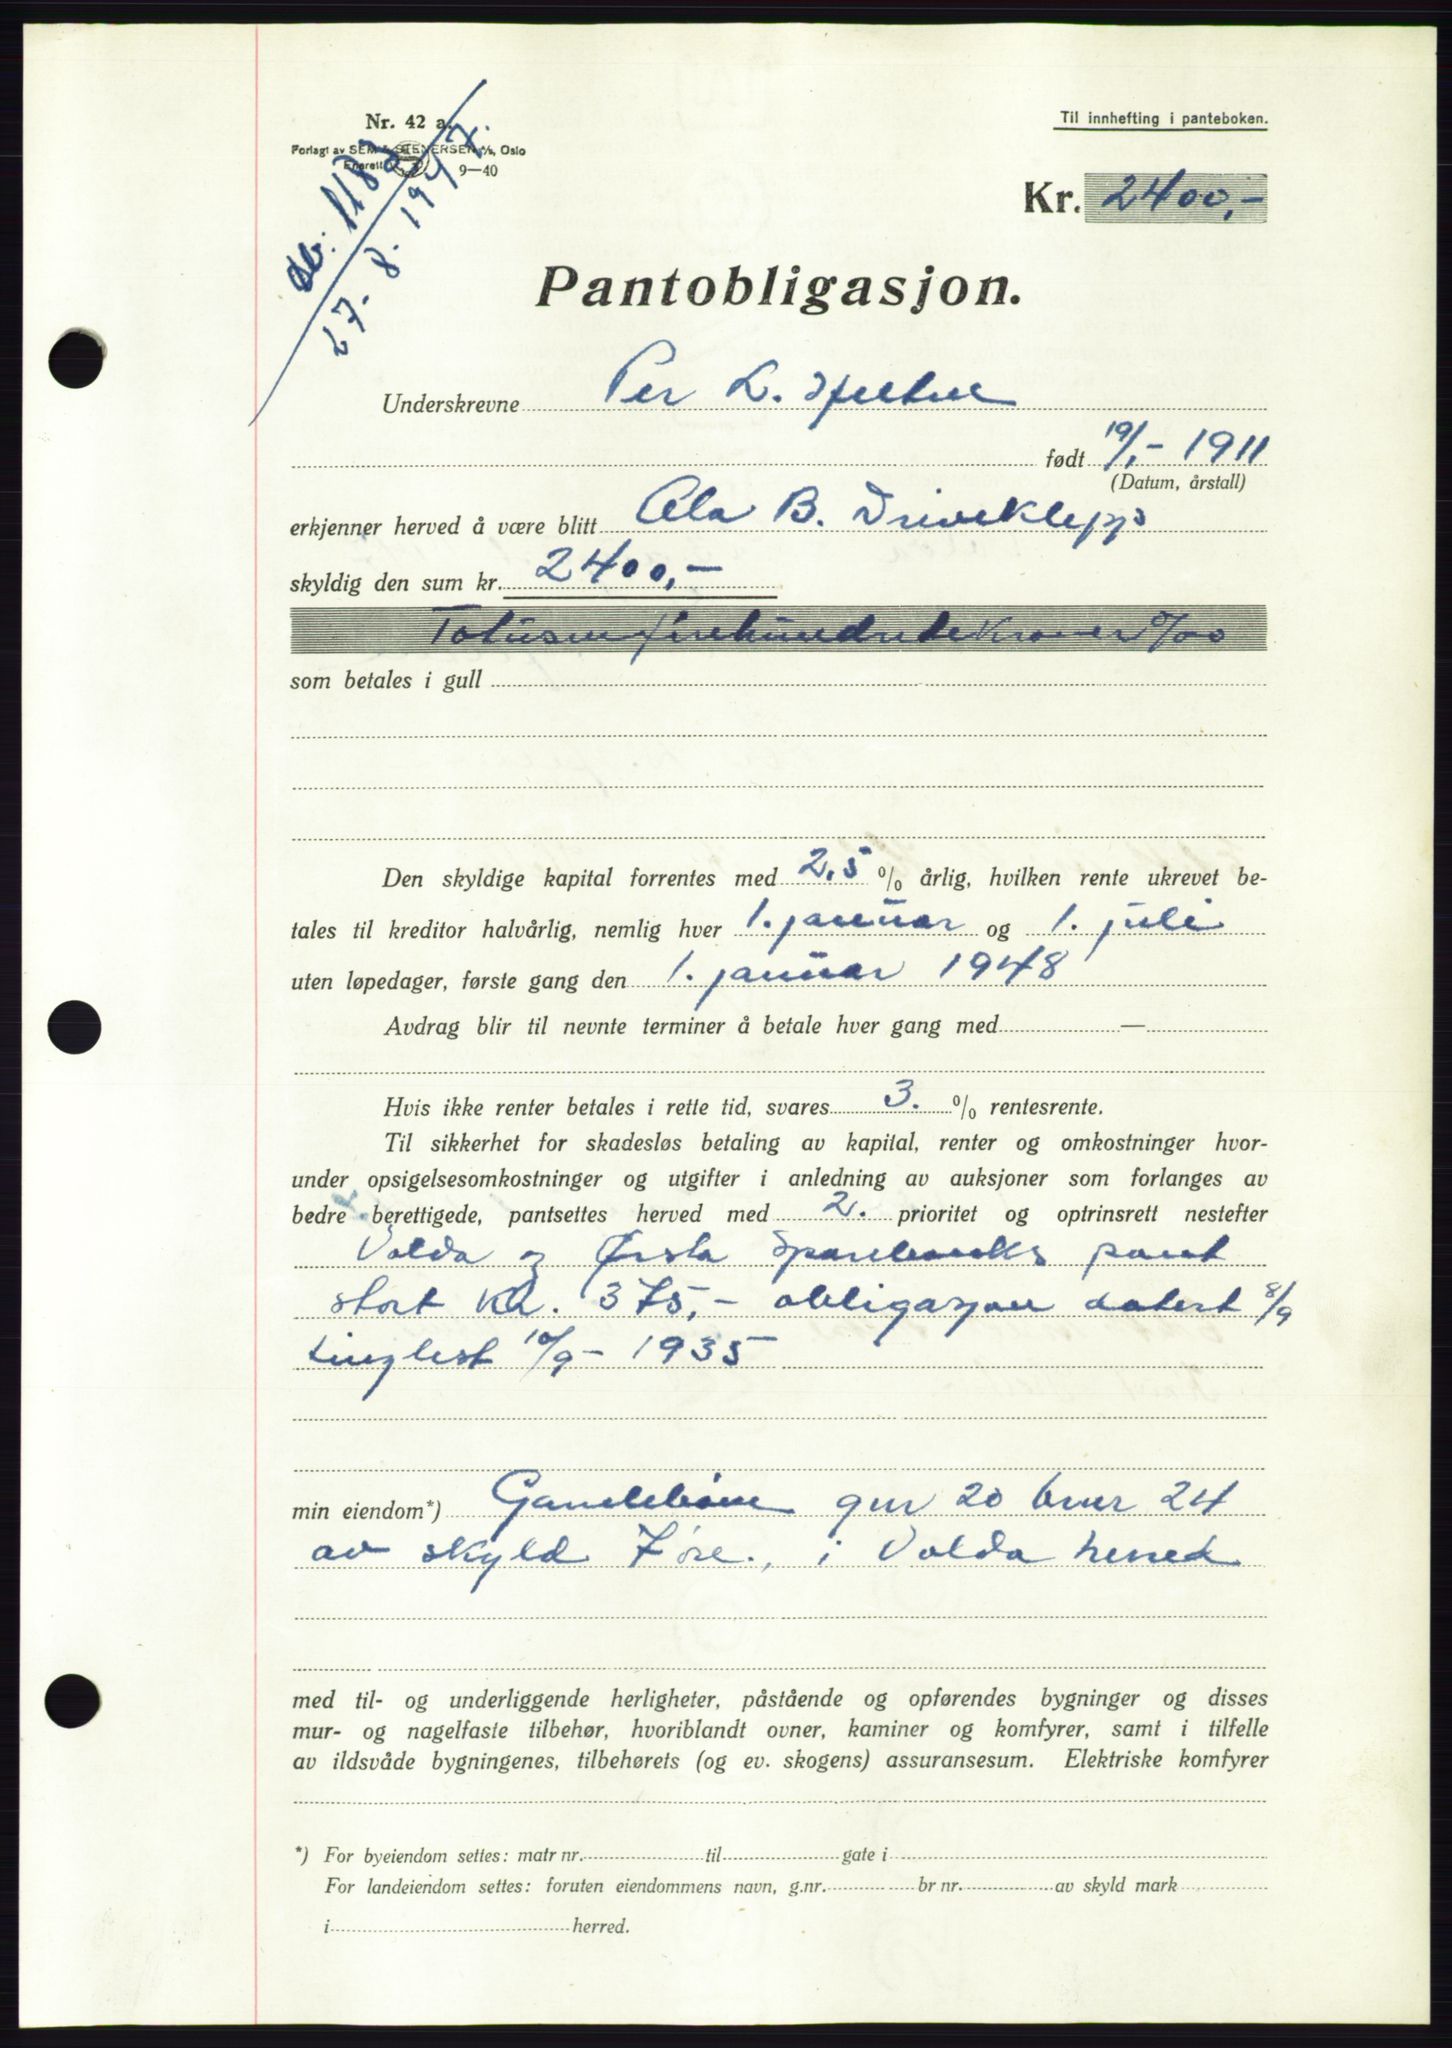 Nr. 42 a.
Til innhefting i panteboken.
Forlagt av SEM & STENERSEN A/S, Oslo
Enerett 9—40
db. 1183
27-8. 1947.
Kr. 2400,-
Pantobligasjon.
Underskrevne Per L.
født 19/1- 1911
(Datum, årstall)
erkjenner herved å være blitt Ola B. Driveklepp
skyldig den sum kr. 2400,-
Totusenfirehundredekroner 0/00
som betales i gull
Den skyldige kapital forrentes med 2,5 % årlig, hvilken rente ukrevet be-
tales til kreditor halvårlig, nemlig hver 1. januar og 1. juli
uten løpedager, første gang den 1. januar 1948
Avdrag blir til nevnte terminer å betale hver gang med —
Hvis ikke renter betales i rette tid, svares 3. % rentesrente.
Til sikkerhet for skadesløs betaling av kapital, renter og omkostninger hvor-
under opsigelsesomkostninger og utgifter i anledning av auksjoner som forlanges av
bedre berettigede, pantsettes herved med 2. prioritet og optrinsrett nestefter
Volda og Ørsta Sparebanks pant
stort kr. 375,- obligasjon datert 8/9
tinglest 10/9- 1935
min eiendom*) gnr 20 bnr 24
av skyld 7 øre., i Volda herred
med til- og underliggende herligheter, påstående og opførendes bygninger og disses
mur- og nagelfaste tilbehør, hvoriblandt ovner, kaminer og komfyrer, samt i tilfelle
av ildsvåde bygningenes, tilbehørets (og ev. skogens) assuransesum. Elektriske komfyrer
*) For byeiendom settes: matr nr. til gate i
For landeiendom settes: foruten eiendommens navn, g.nr. br nr. av skyld mark
i herred.